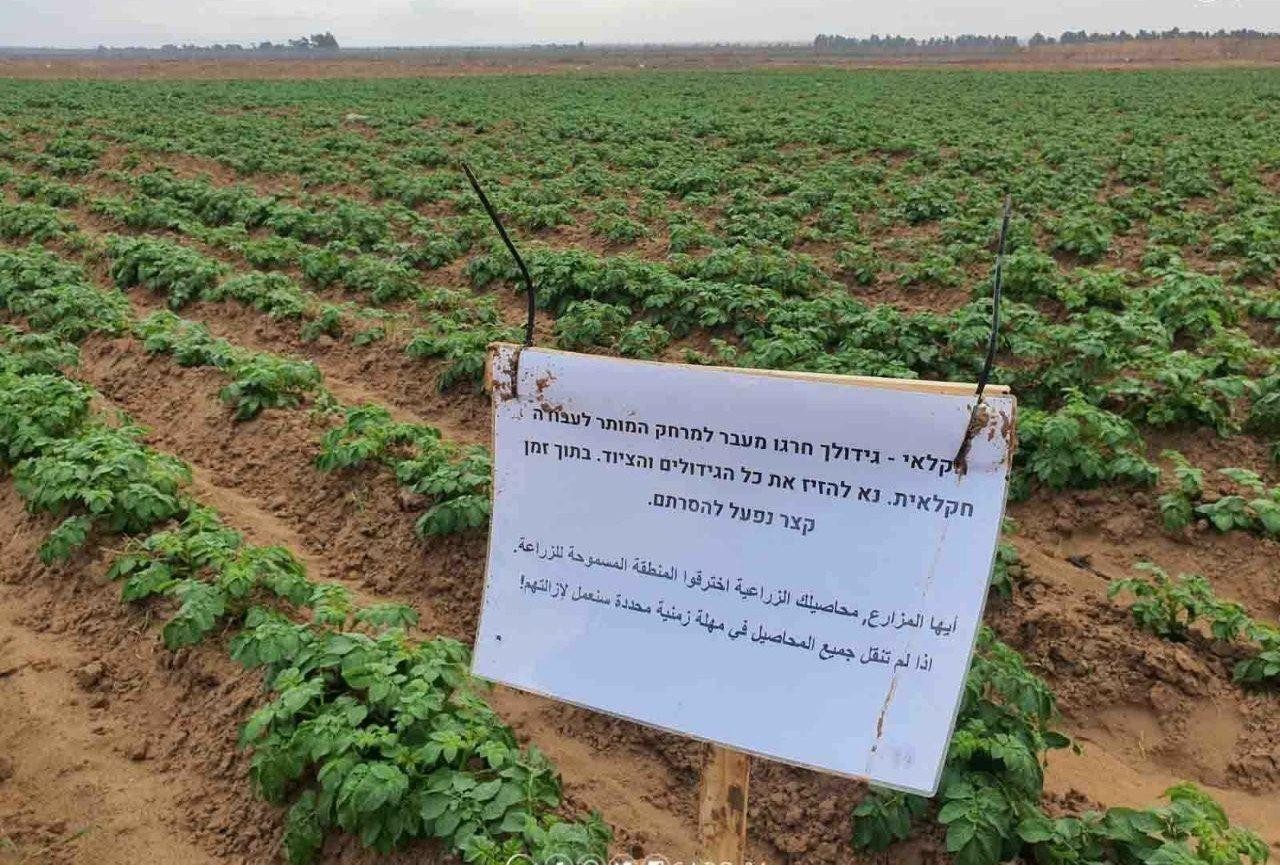 חקלאי - גידולך חרגו מעבר למרחק המותר לעבודה
חקלאית. נא להזיז את כל הגידולים והציוד. בתוך זמן
קצר נפעל להסרתם.
أيها المزارع, محاصيلك الزراعية اخترقوا المنطقة المسموحة للزراعة.
اذا لم تنقل جميع المحاصيل في مهلة زمنية محددة سنعمل لإزالتهم!